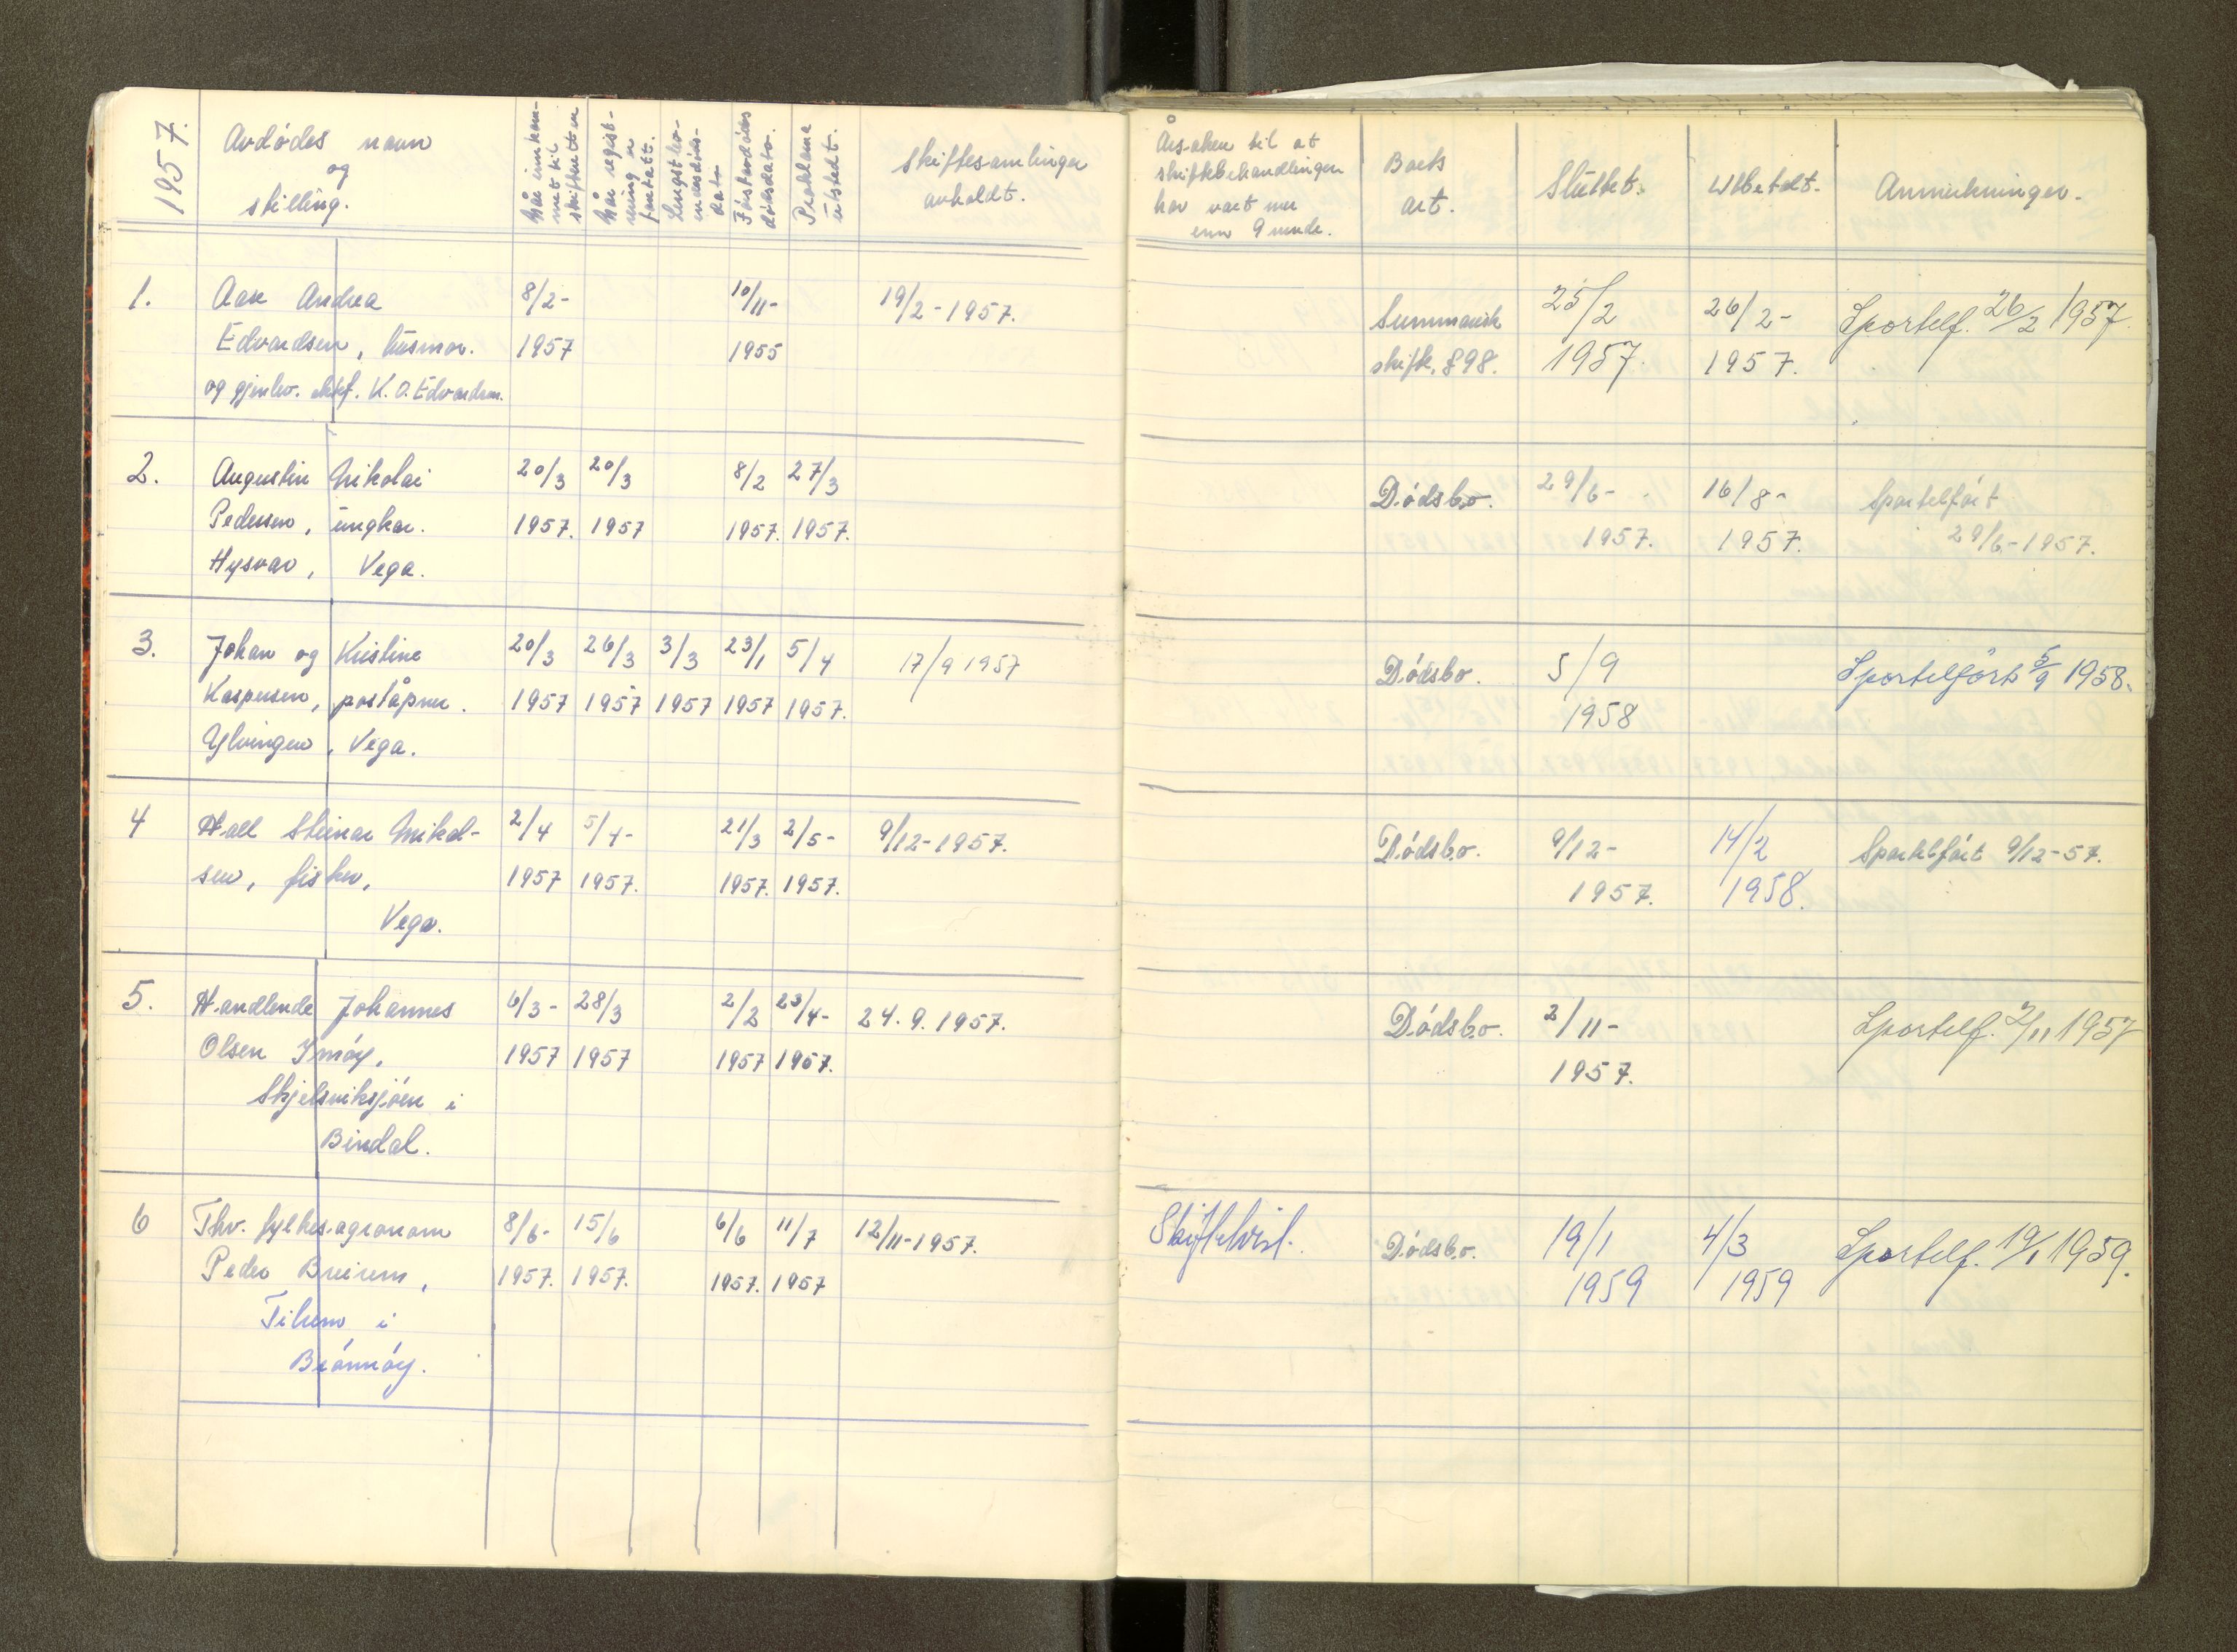 1957.
Avdødes navn
og
stilling.
Når innkom-
met til
skifteretten
Når regist-
rering er
foretatt.
Lengstlev-
endes døds-
dato
Førstavdødes
dødsdato.
Proklama
utstedt.
Skiftesamlinger
avholdt.
Årsaken til at
skiftebehandlingen
har vart mer
enn 9 mndr.
Boets
art.
Sluttet.
Utbetalt.
Anmerkninger.
1. Aase Andrea 8/2- 10/11- 19/2-1957. Summarisk 25/2 26/2- Sportelf. 26/2 1957.
Edvardsen, husmor. 1957 1955 skifte, §98. 1957. 1957.
og gjenlev. ektef. K. O. Edvardsen.
2. Augustin Nikolai 20/3 20/3 8/2 27/3 Dødsbo. 29/6- 16/8- Sportelført
Pedersen, ungkar. 1957. 1957 1957. 1957. 1957. 1957. 29/6-1957.
Hysvær, Vega.
3. Johan og Kristine 20/3 26/3 3/3 23/1 5/4 17/9 1957 Dødsbo. 5/9 Sportelført 5/9 1958.
Kaspersen, poståpner. 1957 1957 1957 1957 1957. 1958
Ylvingen, Vega.
4 Hall Steinar Mikal- 2/4 5/4- 21/3 2/5- 9/12-1957. Dødsbo. 9/12- 14/2 Sportelført 9/12-57.
sen, fisker, 1957 1957. 1957. 1957. 1957. 1958.
Vega.
5. Handlende Johannes 6/3- 28/3 2/2 23/4- 24.9.1957. Dødsbo. 2/11- Sportelf. 2/11 1957
Olsen Imøy, 1957 1957 1957 1957. 1957.
Skjelsviksjøen i
Bindal.
6 Fhv. fylkesagronom 8/6- 15/6 6/6 11/7 12/11-1957. Skiftetvist. Dødsbo. 19/1 4/3 Sportelf. 19/1 1959.
Peder Breivem, 1957. 1957. 1957. 1957 1959 1959
Tilrem i
Brønnøy.